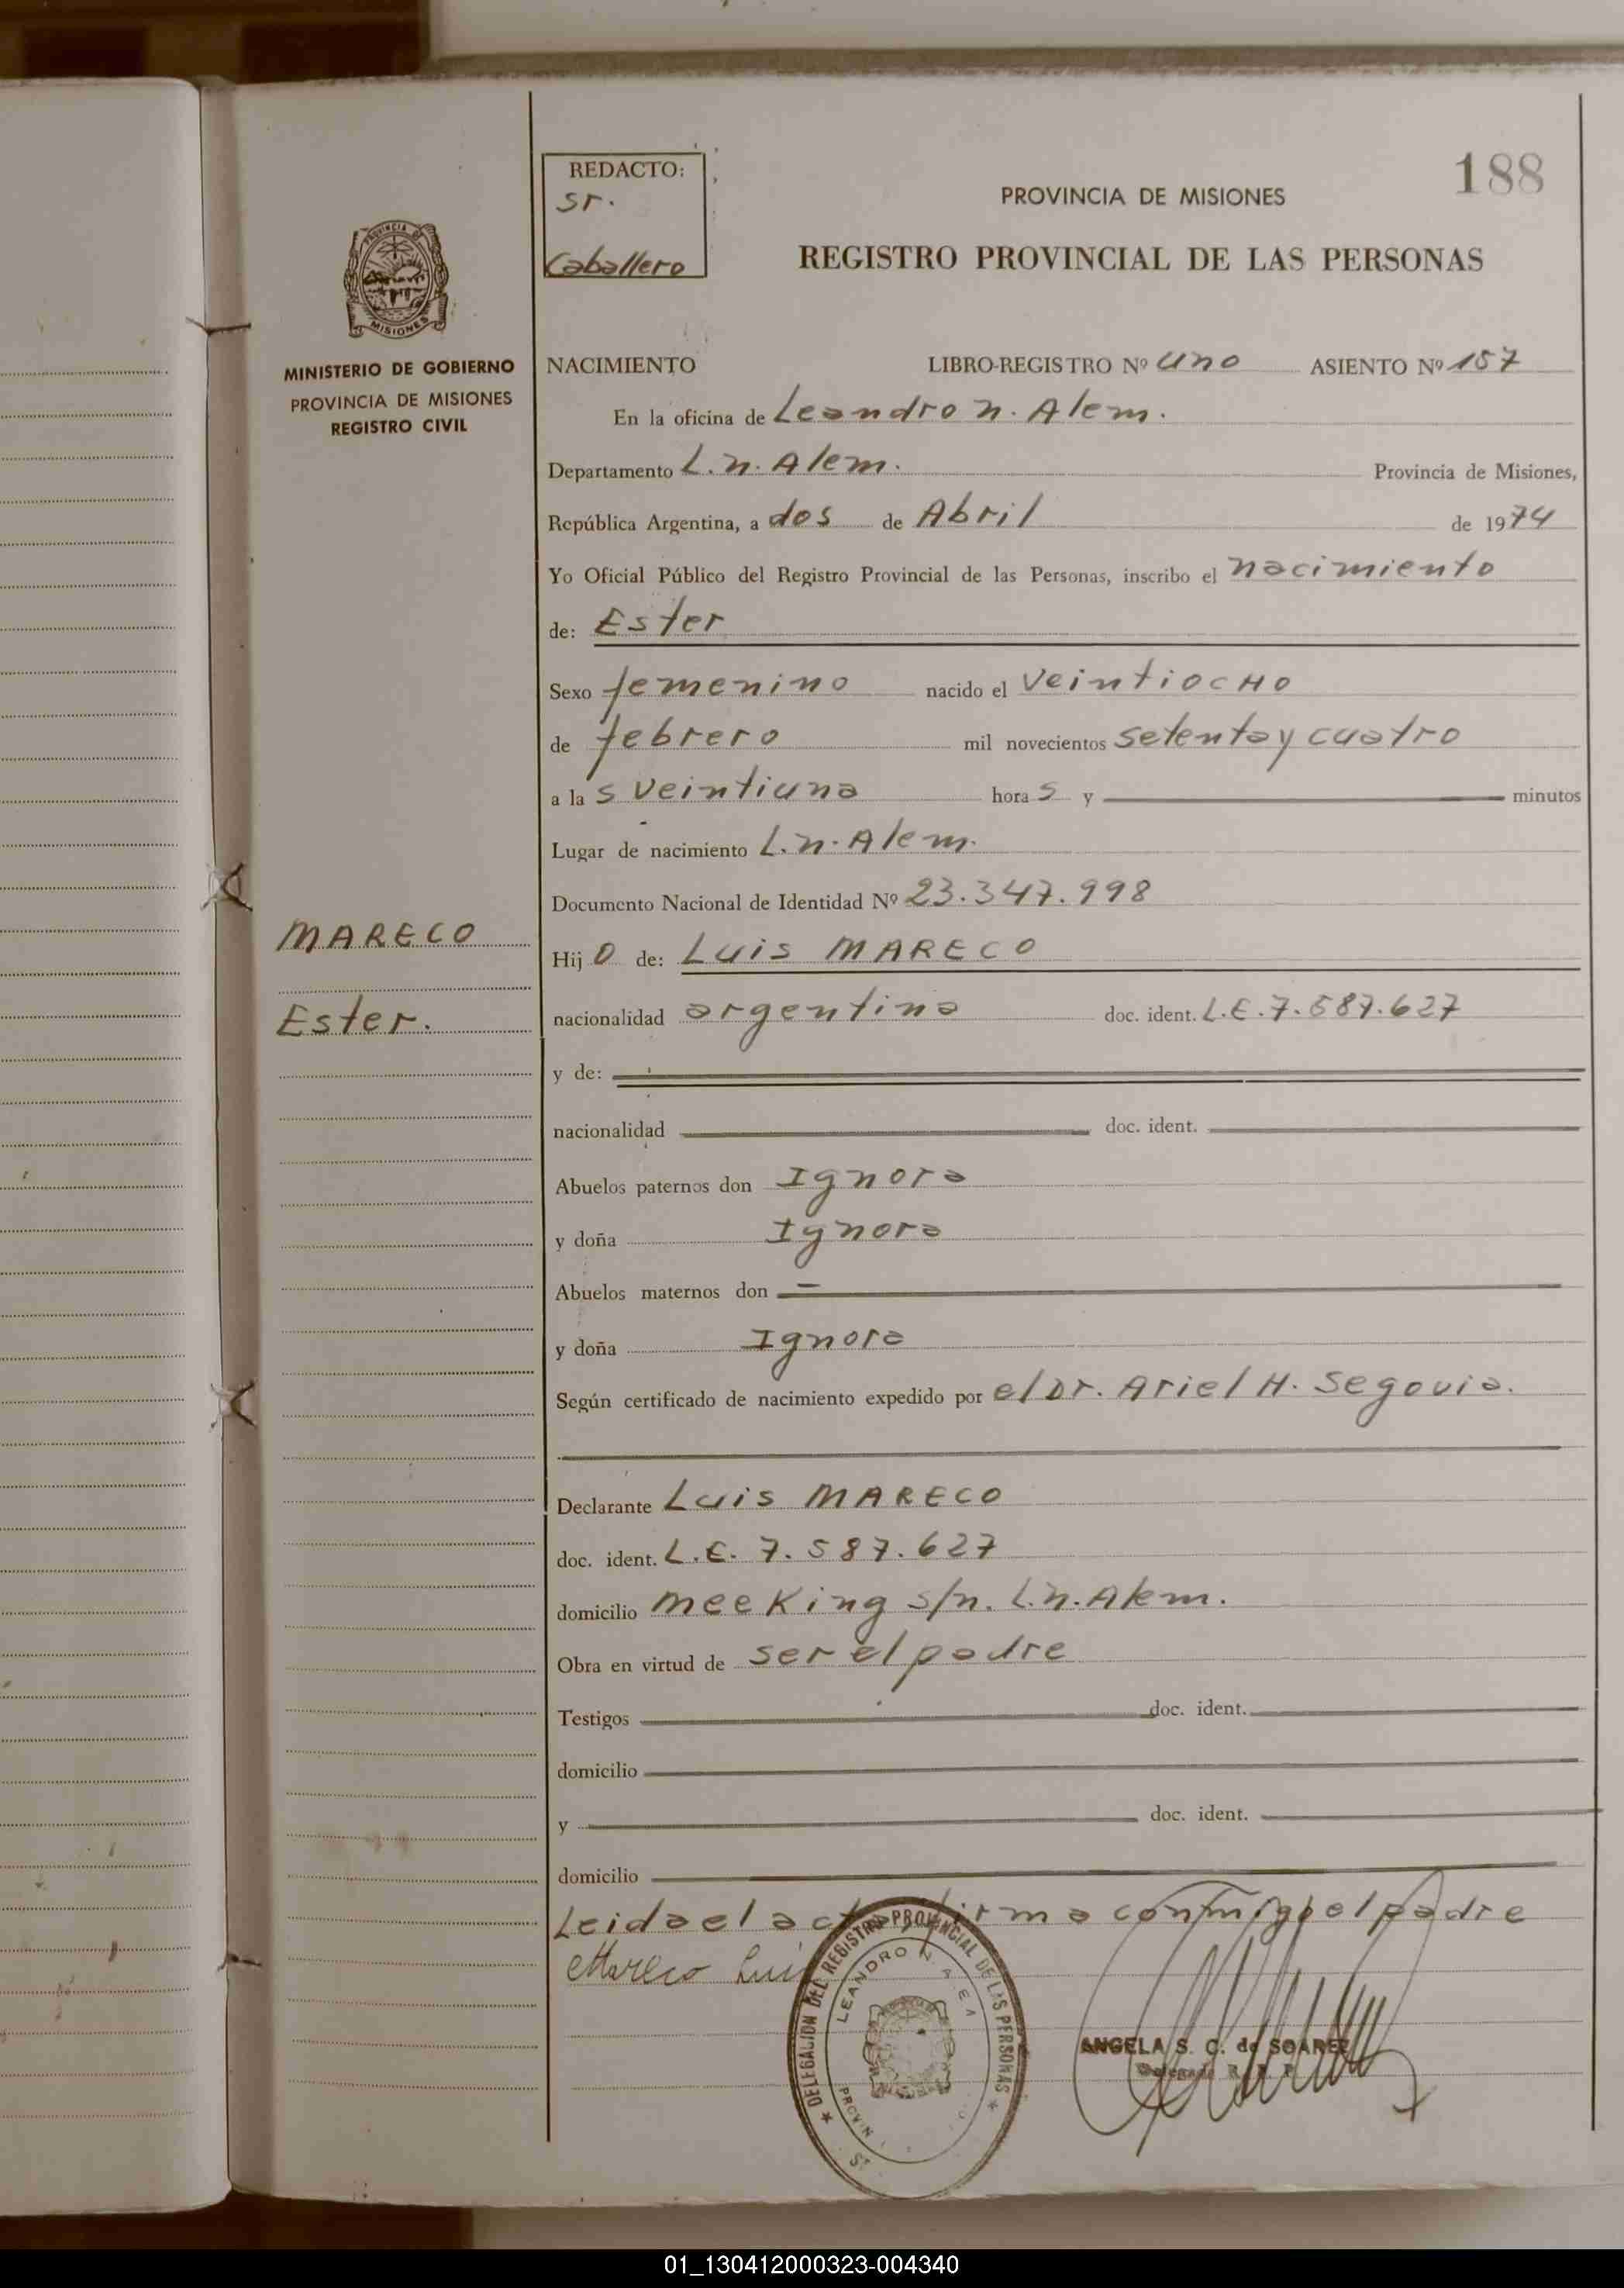 188
REDACTO:
sr.
Caballero
PROVINCIA DE MISIONES
REGISTRO PROVINCIAL DE LAS PERSONAS
PROVINCIA DE
MISIONES
MINISTERIO DE GOBIERNO
PROVINCIA DE MISIONES
REGISTRO CIVIL
NACIMIENTO LIBRO-REGISTRO Nº uno ASIENTO Nº 157
En la oficina de Leandro n. Alem.
Departamento L.n. Alem. Provincia de Misiones,
República Argentina, a dos de Abril de 1974
Yo Oficial Público del Registro Provincial de las Personas, inscribo el nacimiento
de: Ester
Sexo femenino nacido el veintiocHo
de febrero mil novecientos setenta y cuatro
a la s veintiuna hora s y minutos
Lugar de nacimiento L.n. Alem.
Documento Nacional de Identidad Nº 23.347.998
MARECO
Hij o de: Luis MARECO
Ester.
nacionalidad argentina doc. ident. L.E. 7.587.627
y de:
nacionalidad doc. ident.
Abuelos paternos don Ignora
y doña Ignora
Abuelos maternos don —
y doña Ignora
Según certificado de nacimiento expedido por el Dr. Ariel H. Segovia.
Declarante Luis MARECO
doc. ident. L.E. 7.587.627
domicilio mee King s/n. L.n. Alem.
Obra en virtud de ser el padre
Testigos doc. ident.
domicilio
y doc. ident.
domicilio
Leida el acta, firma conmigo el padre
Mareco Luis
DELEGACION DEL REGISTRO PROVINCIAL DE LAS PERSONAS
LEANDRO N. ALEM
ANGELA S. C. de SOAREZ
Delegada R. P. P.
01_130412000323-004340